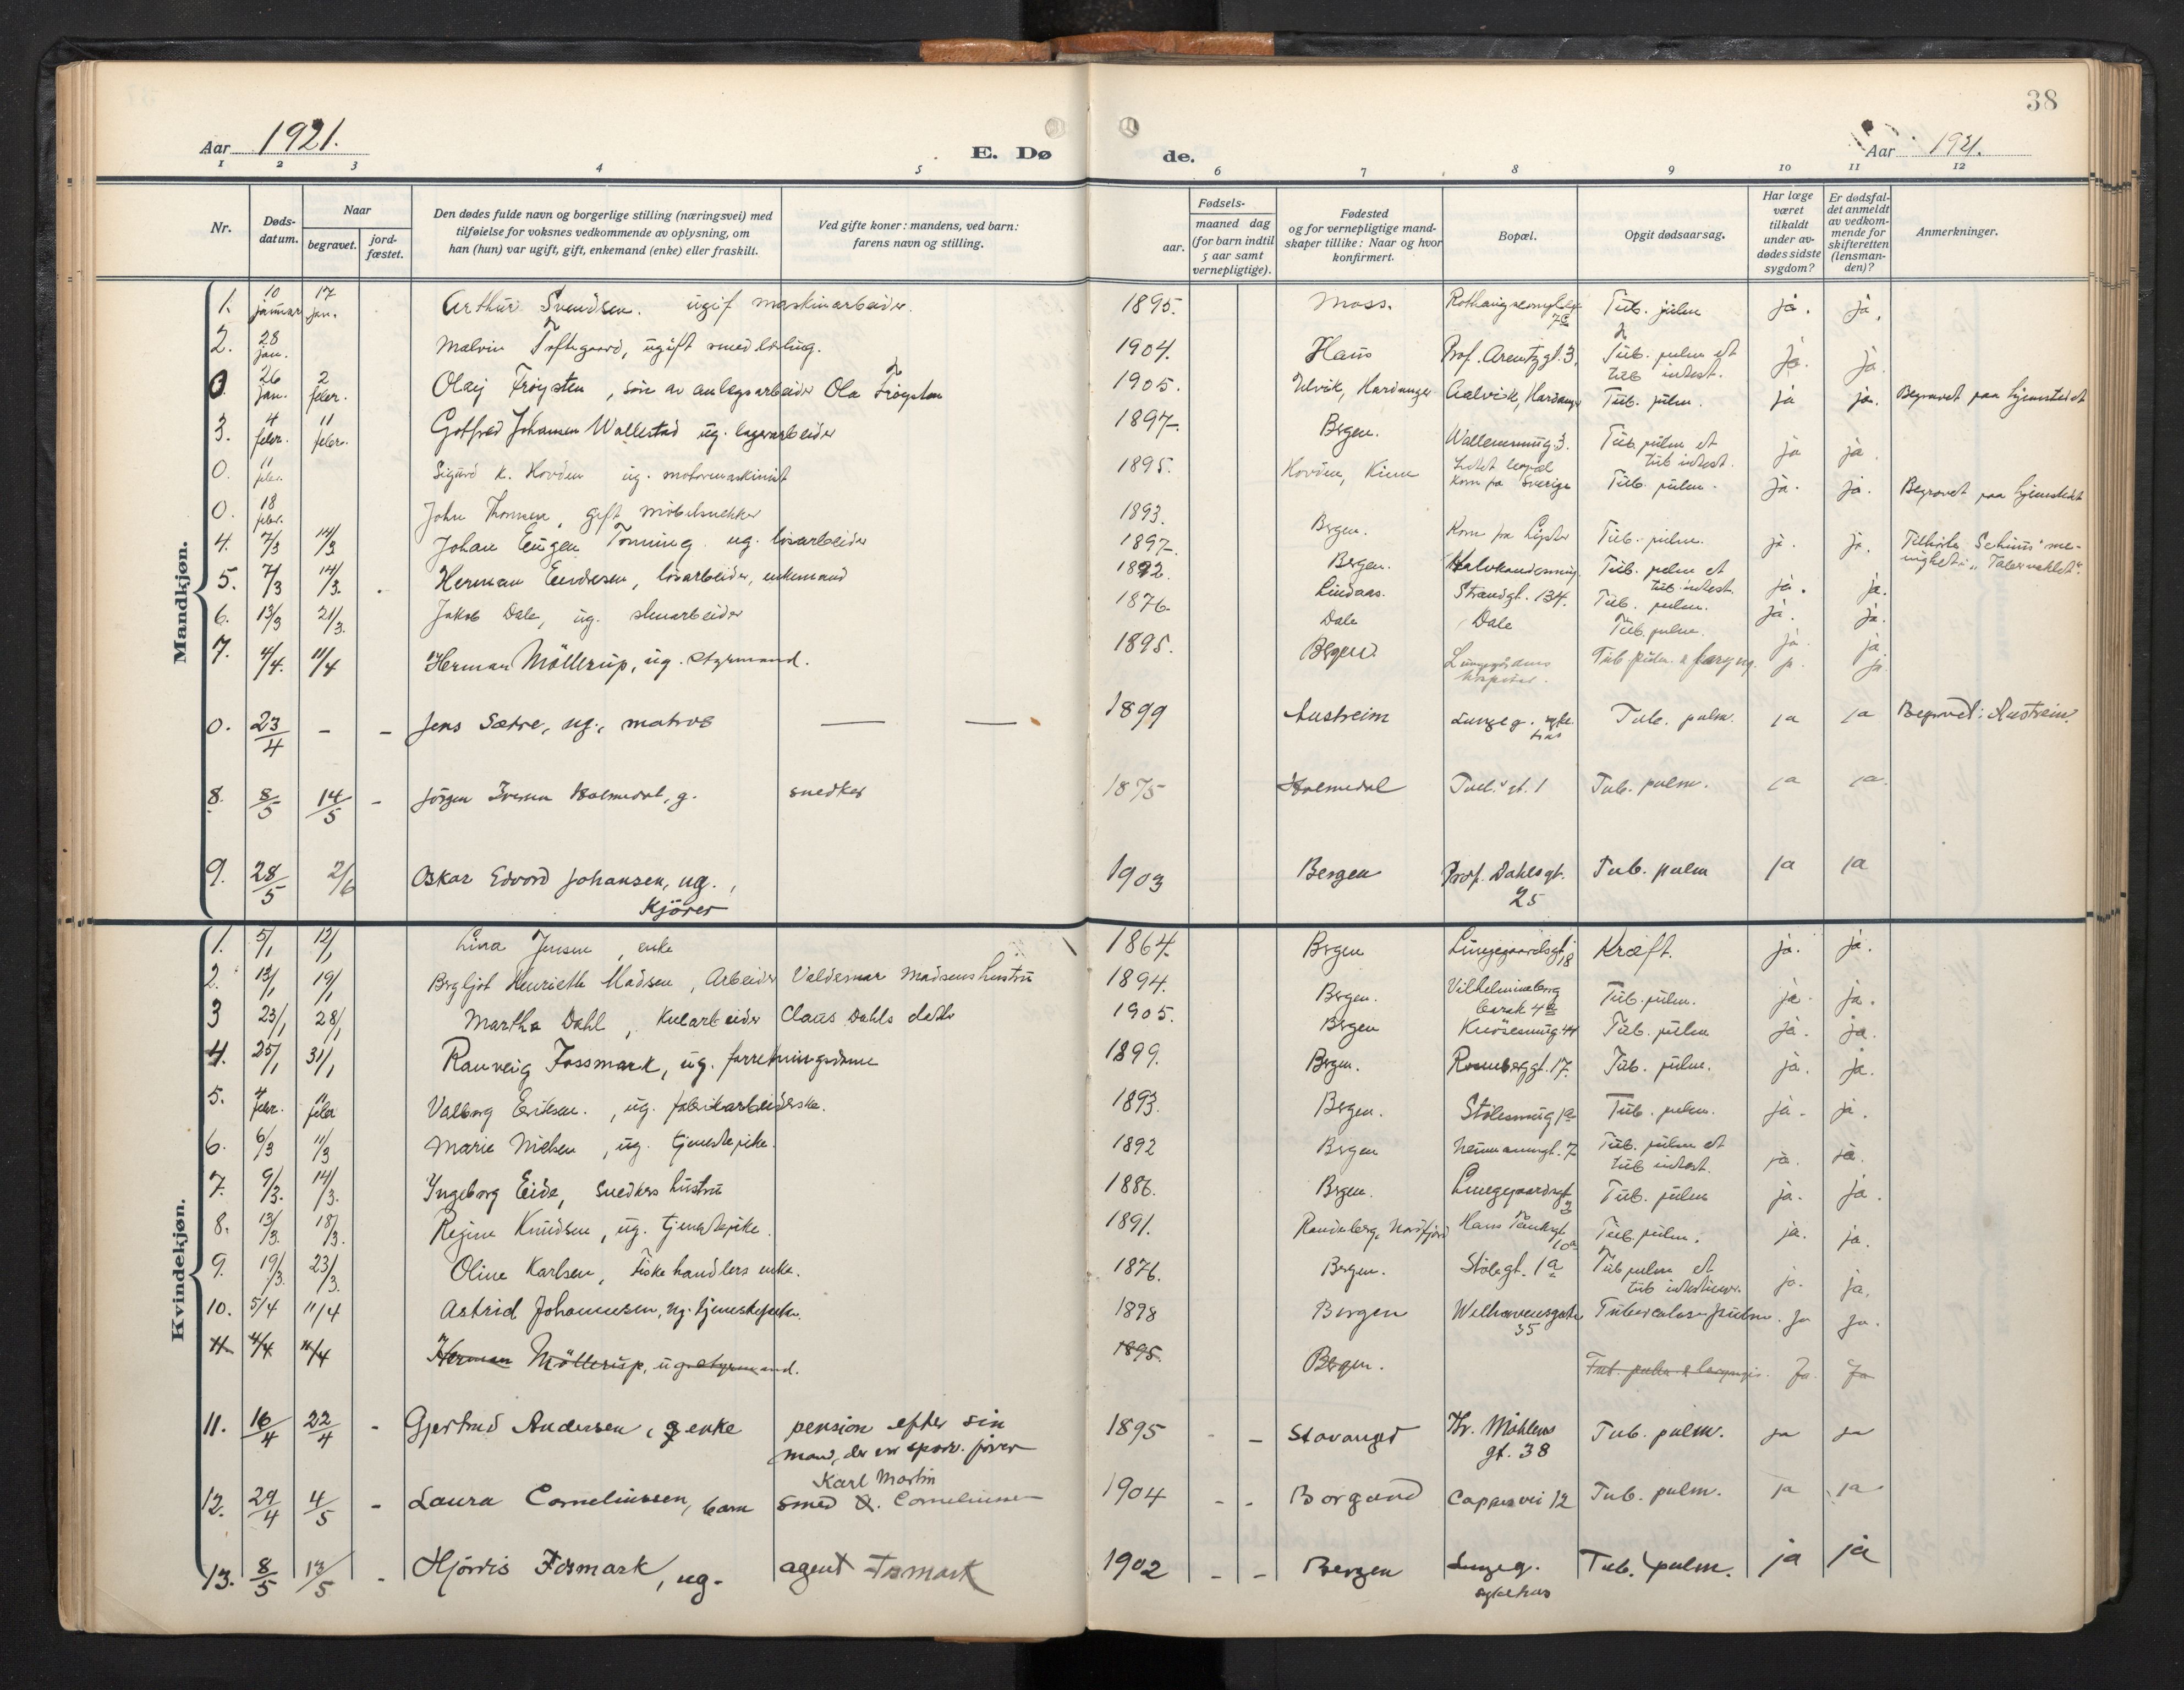 38
Aar 1921.
E. Dø
de.
Aar 1921.
1 2 3 4 5 6 7 8 9 10 11 12
Nr.
Døds-
datum.
Naar
begravet.
jord-
fæstet.
Den dødes fulde navn og borgerlige stilling (næringsvei) med
tilføielse for voksnes vedkommende av oplysning, om
han (hun) var ugift, gift, enkemand (enke) eller fraskilt.
Ved gifte koner: mandens, ved barn:
farens navn og stilling.
Fødsels-
aar.
maaned dag
(for barn indtil
5 aar samt
vernepligtige).
Fødested
og for vernepligtige mand-
skaper tillike: Naar og hvor
konfirmert.
Bopæl.
Opgit dødsaarsag.
Har læge
været
tilkaldt
under av-
dødes sidste
sygdom?
Er dødsfal-
det anmeldt
av vedkom-
mende for
skifteretten
(lensman-
den)?
Anmerkninger.
Mandkjøn.
1. 10 januar 17 jan. Arthur Svendsen. ugif maskinarbeider. 1895. Moss. 7c Tub. pulm ja. ja.
2. 28 jan. Malvin Toftegaard, ugift smedlærling. 1904. Haus Prof. Arentzgt. 3. Tub. pulm et tub intest. ja. ja.
0. 26 jan. 2 febr. Olav Trøysten, søn av anlegsarbeider Ola Trøysten 1905. Ulvik, Hardanger Aalvik, Hardanger Tub. pulm. ja ja. Begravet paa hjemstedet
3. 4 febr. 11 febr. Gotfred Johansen Wallestad ug. lagerarbeider 1897. Bergen. 3. Tub. pulm et tub intest. ja ja.
0. 11 febr. Sigurd K. Hovden ug. motormaskinist 1895. Hovden, Kinn kom fra Sverige Tub. pulm. ja. ja. Begravet paa hjemstedet
0. 18 febr. John Thomsen, gift møbelsnekker 1893. Bergen. Kom fra Lyster Tub. pulm. ja. ja.
4. 7/3 14/3 Johan Eugen Tonning ug. løsarbeider 1897. Bergen. Tub. pulm et tub. intest. ja. ja.
5. 7/3 14/3. Herman Endresen, løsarbeider, enkemand 1892. Lindaas. Strandgt. 134. Tub. pulm. ja. ja.
6. 13/3 21/3. Jakob Dale, ug. 1876. Dale Dale Tub. pulm. ja. ja.
7. 4/4. 11/4 Herman Möllerup, ug. styrmand. 1895. Bergen. Lungegårdens hospital. Tub. pulm. & laryng. ja. ja.
0. 23/4 - - Jens Sætre, ug., matros — — 1899 Austreim Lungeg. syke hus Tub. pulm. ja ja Begravet i Austreim.
8. 8/5 14/5 - Jörgen Iversen Holmedal, g. snedker 1875 Holmedal 1 Tub. pulm. ja ja.
9. 28/5 2/6 Oskar Edvard Johansen, ug., Kjörer 1903 Bergen Prof. Dahlsgt. 25 Tub. pulm ja ja
Kvindekjøn.
1. 5/1 12/1 Lina Jensen, enke 1864. Bergen Lungegaardsgt. 18 Kræft. ja. ja.
2. 13/1 19/1 Bergljot Henriette Madsen, Arbeider Valdemar Madsens hustru 1894. Bergen. Vilhelmineborg barak 4a Tub. pulm. ja. ja.
3 23/1 28/1 Martha Dahl, Kularbeider Claus Dahls datter 1905. Bergen Knøsesmug 44 Tub. pulm ja. ja.
4. 25/1 31/1 Rauveig Fossmark, ug. forretningsdame 1899. Bergen. Rosenberggt. 17. Tub. pulm. ja. ja.
5. 4 febr. 11 febr Valborg Eriksen., ug. fabrikarbeiderske. 1893. Bergen. Stölesmug 1a Tub. pulm. ja. ja.
6. 6/3 11/3 Marie Nielsen, ug. tjenestepike. 1892 Bergen Neumannsgt. 7 Tub. pulm et tub intest. ja. ja.
7. 9/3. 14/3. Ingeborg Eide, Snedkers hustru 1886. Bergen. Lungegaardsgt 3 Tub. pulm ja. ja.
8. 13/3. 18/3. Regine Knudsen, ug. tjenestepike. 1891. Randaberg, Nordfjord Hans Tanksgt 10a Tub. pulm. ja. ja.
9. 19/3. 23/3. Oline Karlsen, Fiskehandlers enke. 1876. Bergen. Stölegt. 1a Tub pulm et tub intestinor. ja. ja.
10. 5/4 11/4 Astrid Johannesen, ug. tjenestepike. 1898 Bergen Welhavensgate 35 Tuberculos pulm. ja ja.
11 4/4 11/4 Herman Möllerup, ug styrmand. 1895. Bergen. Tub. pulm & laryngis. Ja Ja
11. 16/4 22/4 - Gjertrud Andersen, enke pension efter sin mand, der var sporv. fører 1895 - - Stavanger Thr. Möhlens gt. 38 Tub. pulm. ja ja
12. 29/4 4/5 - Laura Corneliussen, barn smed Karl Martin Corneliussen 1904 - - Borgund Cappesvei 12 Tub. pulm. ja ja
13. 8/5 13/5 - Hjördis Fosmark, ug. agent Fosmark 1902 - - Bergen Lungeg. sykehus Tub. pulm. ja ja